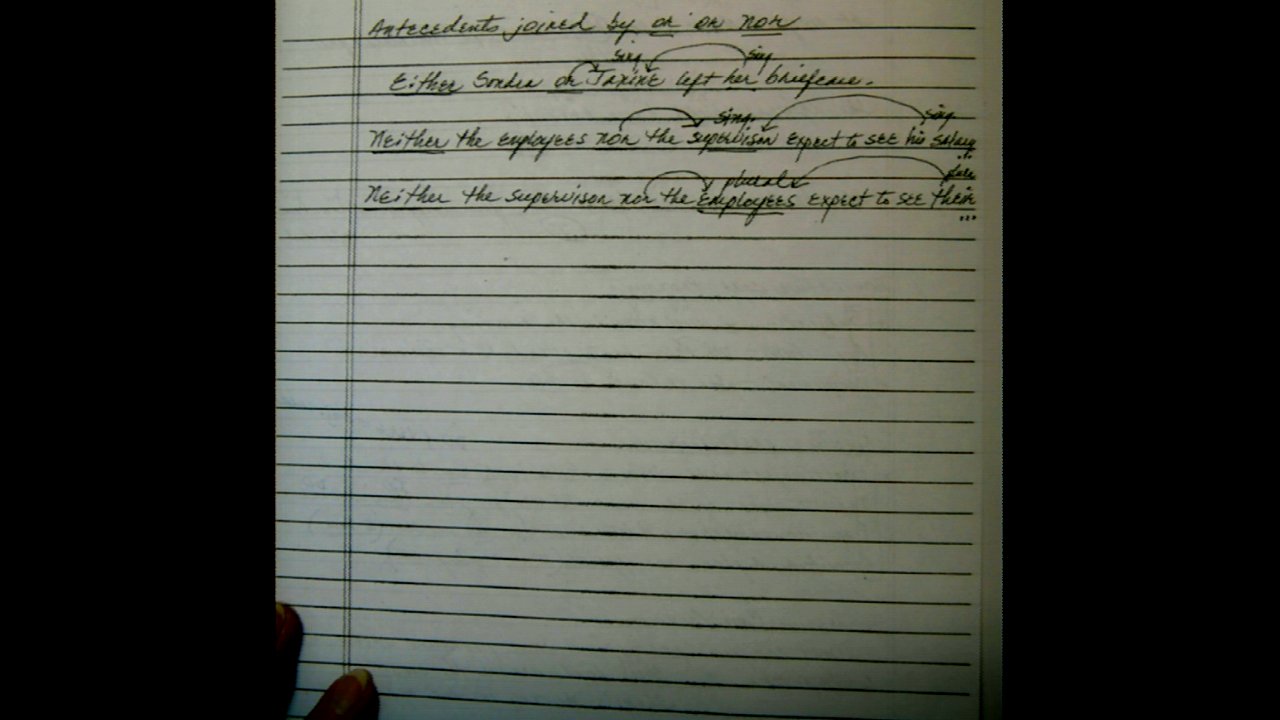 Antecedents joined by or or nor
sing sing
Either Sondra or Janine left her briefcase.
sing. sing.
Neither the employees nor the supervisor expect to see his salary
...
plural plu
Neither the supervisor nor the employees expect to see their
...